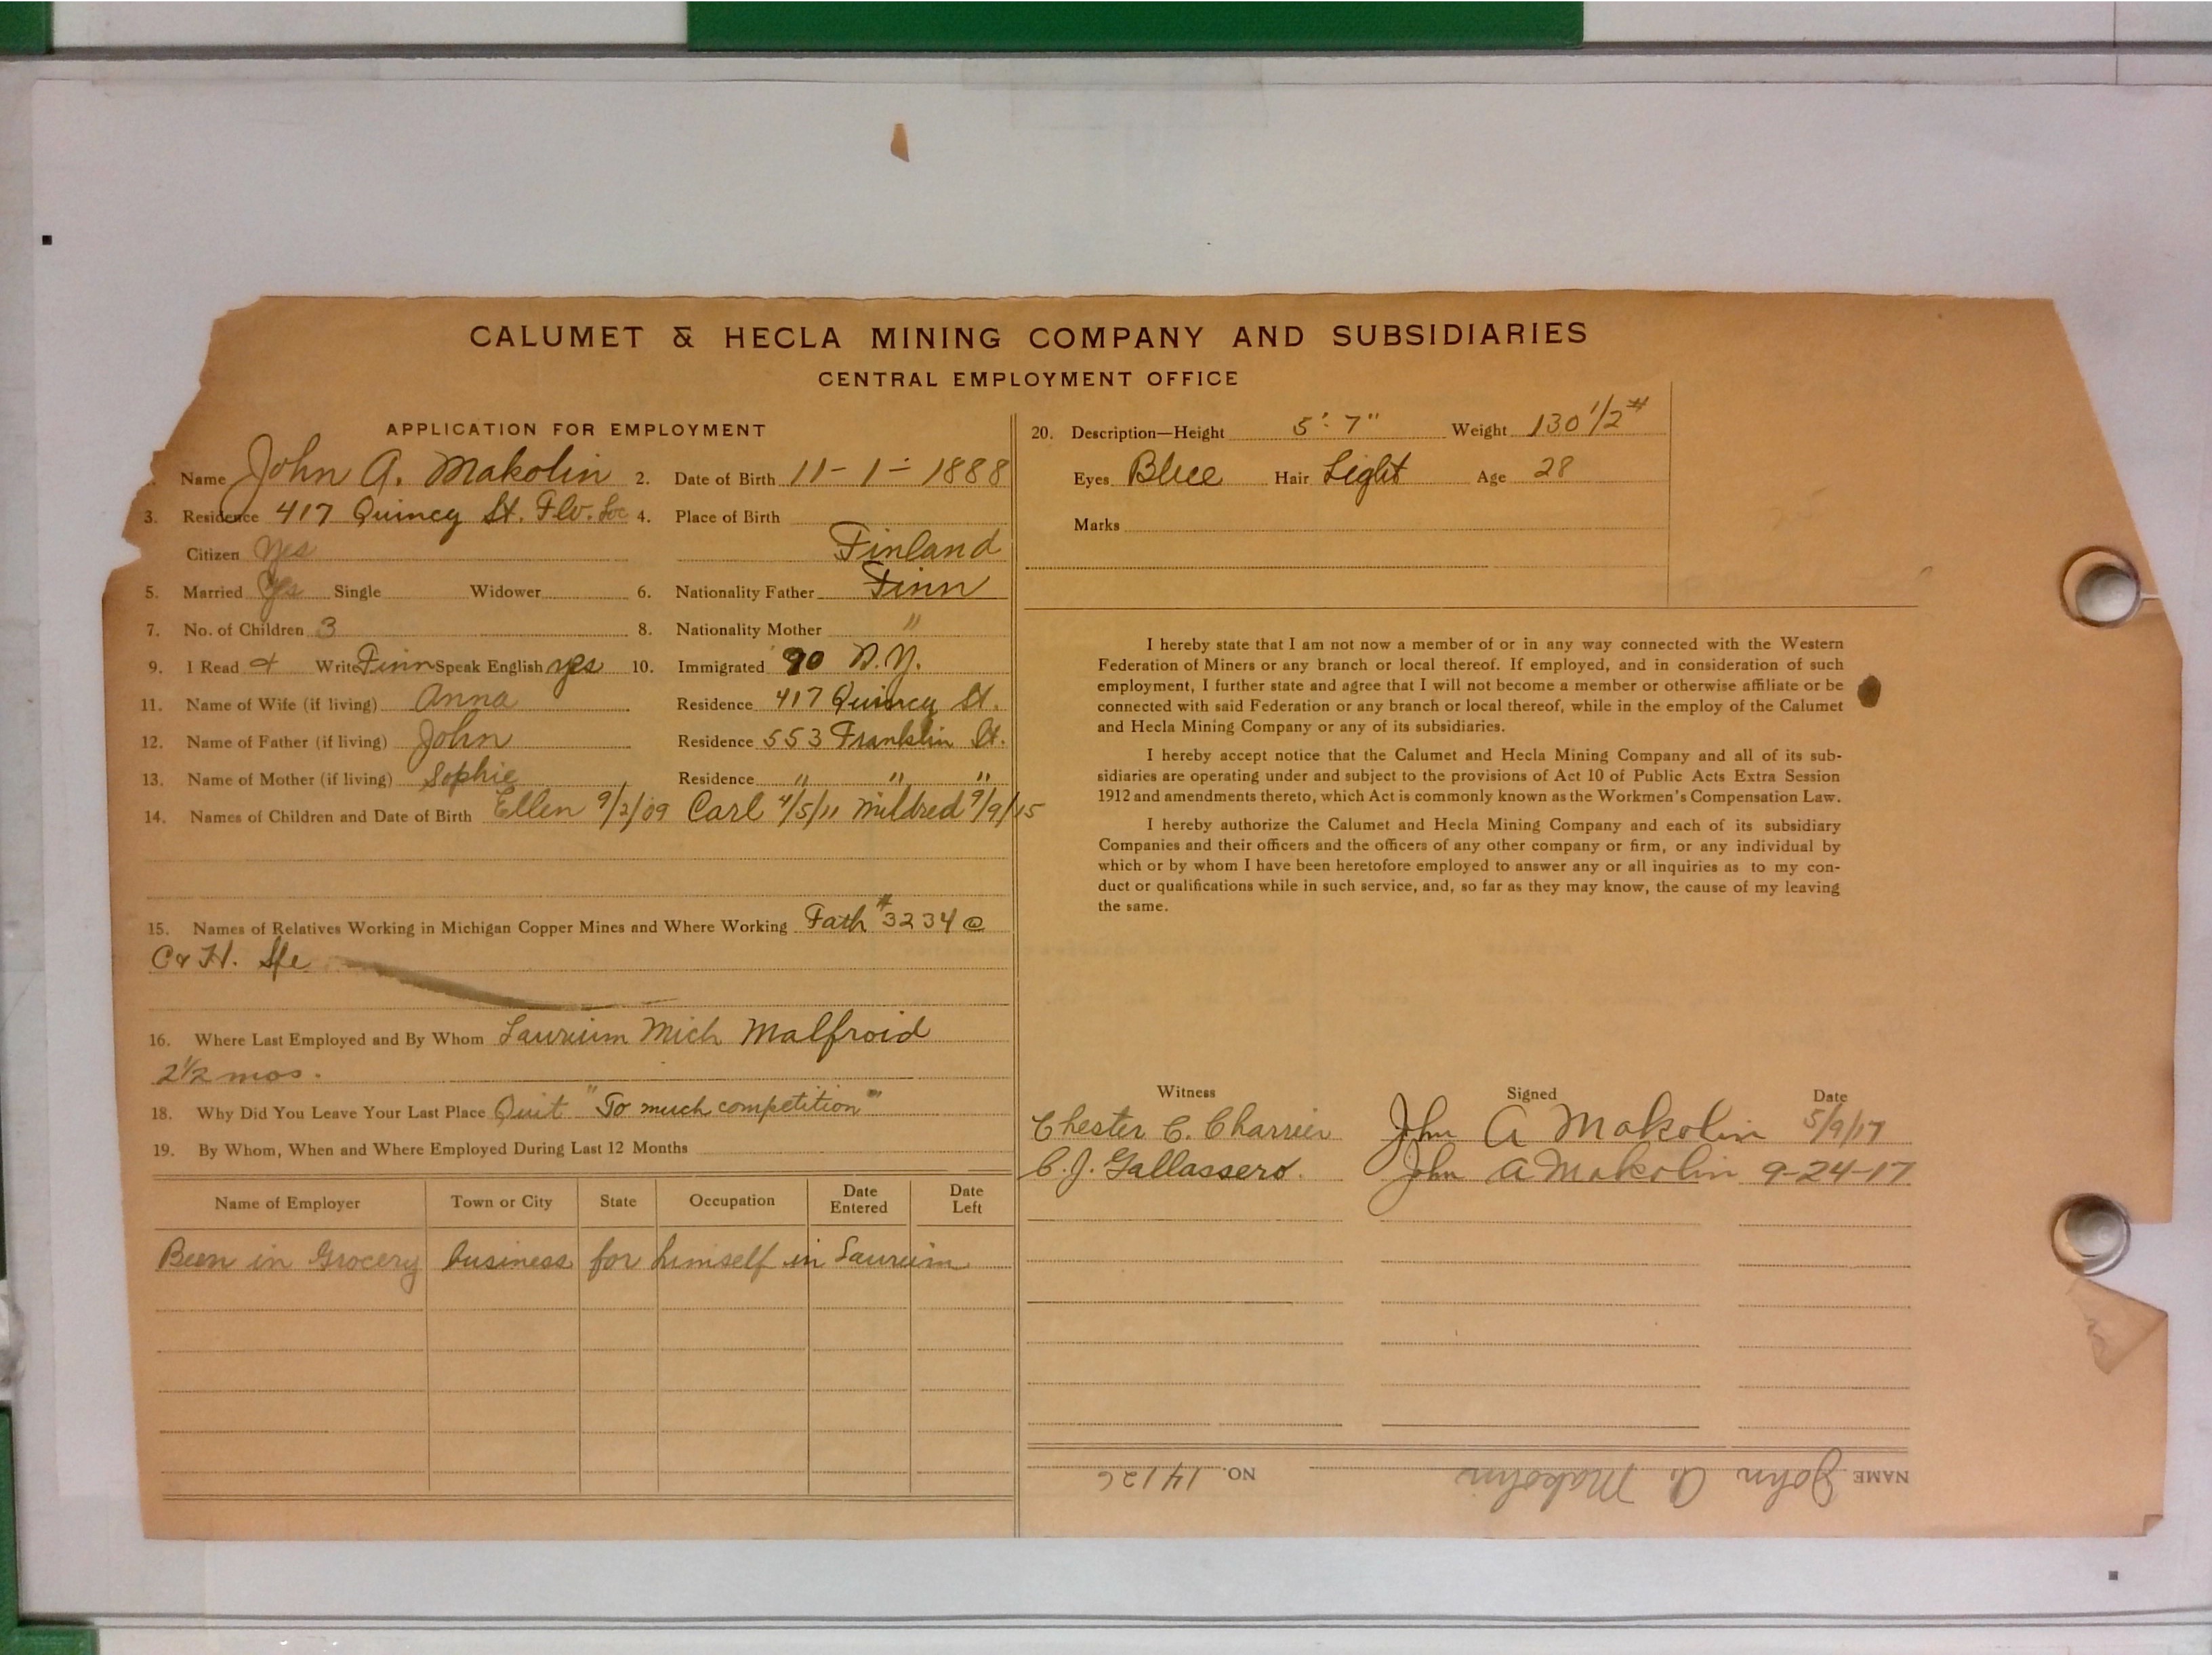 CALUMET & HECLA MINING COMPANY AND SUBSIDIARIES
CENTRAL EMPLOYMENT OFFICE
APPLICATION FOR EMPLOYMENT
Name John A. Makolin 2. Date of Birth 11-1-1888
3. Residence 417 Quincy St. Flo. Loc 4. Place of Birth
Citizen Yes Finland
5. Married Yes Single Widower 6. Nationality Father Finn
7. No. of Children 3 8. Nationality Mother "
9. I Read & Write Finn Speak English yes 10. Immigrated 90 N.Y.
11. Name of Wife (if living) Anna Residence 417 Quincy St.
12. Name of Father (if living) John Residence 553 Franklin St.
13. Name of Mother (if living) Sophie Residence " " "
14. Names of Children and Date of Birth Ellen 9/2/09 Carl 4/5/11 Mildred 9/9/15
15. Names of Relatives Working in Michigan Copper Mines and Where Working Fath #3234 @
C & H. Sfe
16. Where Last Employed and By Whom Laurium Mich Malfroid
2 1/2 mos.
18. Why Did You Leave Your Last Place Quit "To much competition"
19. By Whom, When and Where Employed During Last 12 Months
Name of Employer Town or City State Occupation Date Entered Date Left
Been in Grocery business for himself in Laurium
20. Description—Height 5' 7" Weight 130 1/2 #
Eyes Blue Hair Light Age 28
Marks
I hereby state that I am not now a member of or in any way connected with the Western
Federation of Miners or any branch or local thereof. If employed, and in consideration of such
employment, I further state and agree that I will not become a member or otherwise affiliate or be
connected with said Federation or any branch or local thereof, while in the employ of the Calumet
and Hecla Mining Company or any of its subsidiaries.
I hereby accept notice that the Calumet and Hecla Mining Company and all of its sub-
sidiaries are operating under and subject to the provisions of Act 10 of Public Acts Extra Session
1912 and amendments thereto, which Act is commonly known as the Workmen's Compensation Law.
I hereby authorize the Calumet and Hecla Mining Company and each of its subsidiary
Companies and their officers and the officers of any other company or firm, or any individual by
which or by whom I have been heretofore employed to answer any or all inquiries as to my con-
duct or qualifications while in such service, and, so far as they may know, the cause of my leaving
the same.
Witness Signed Date
Chester C. Charrier John A Makolin 5/9/17
C. J. Gallassero. John A Makolin 9-24-17
NAME John A. Makolin NO. 14126